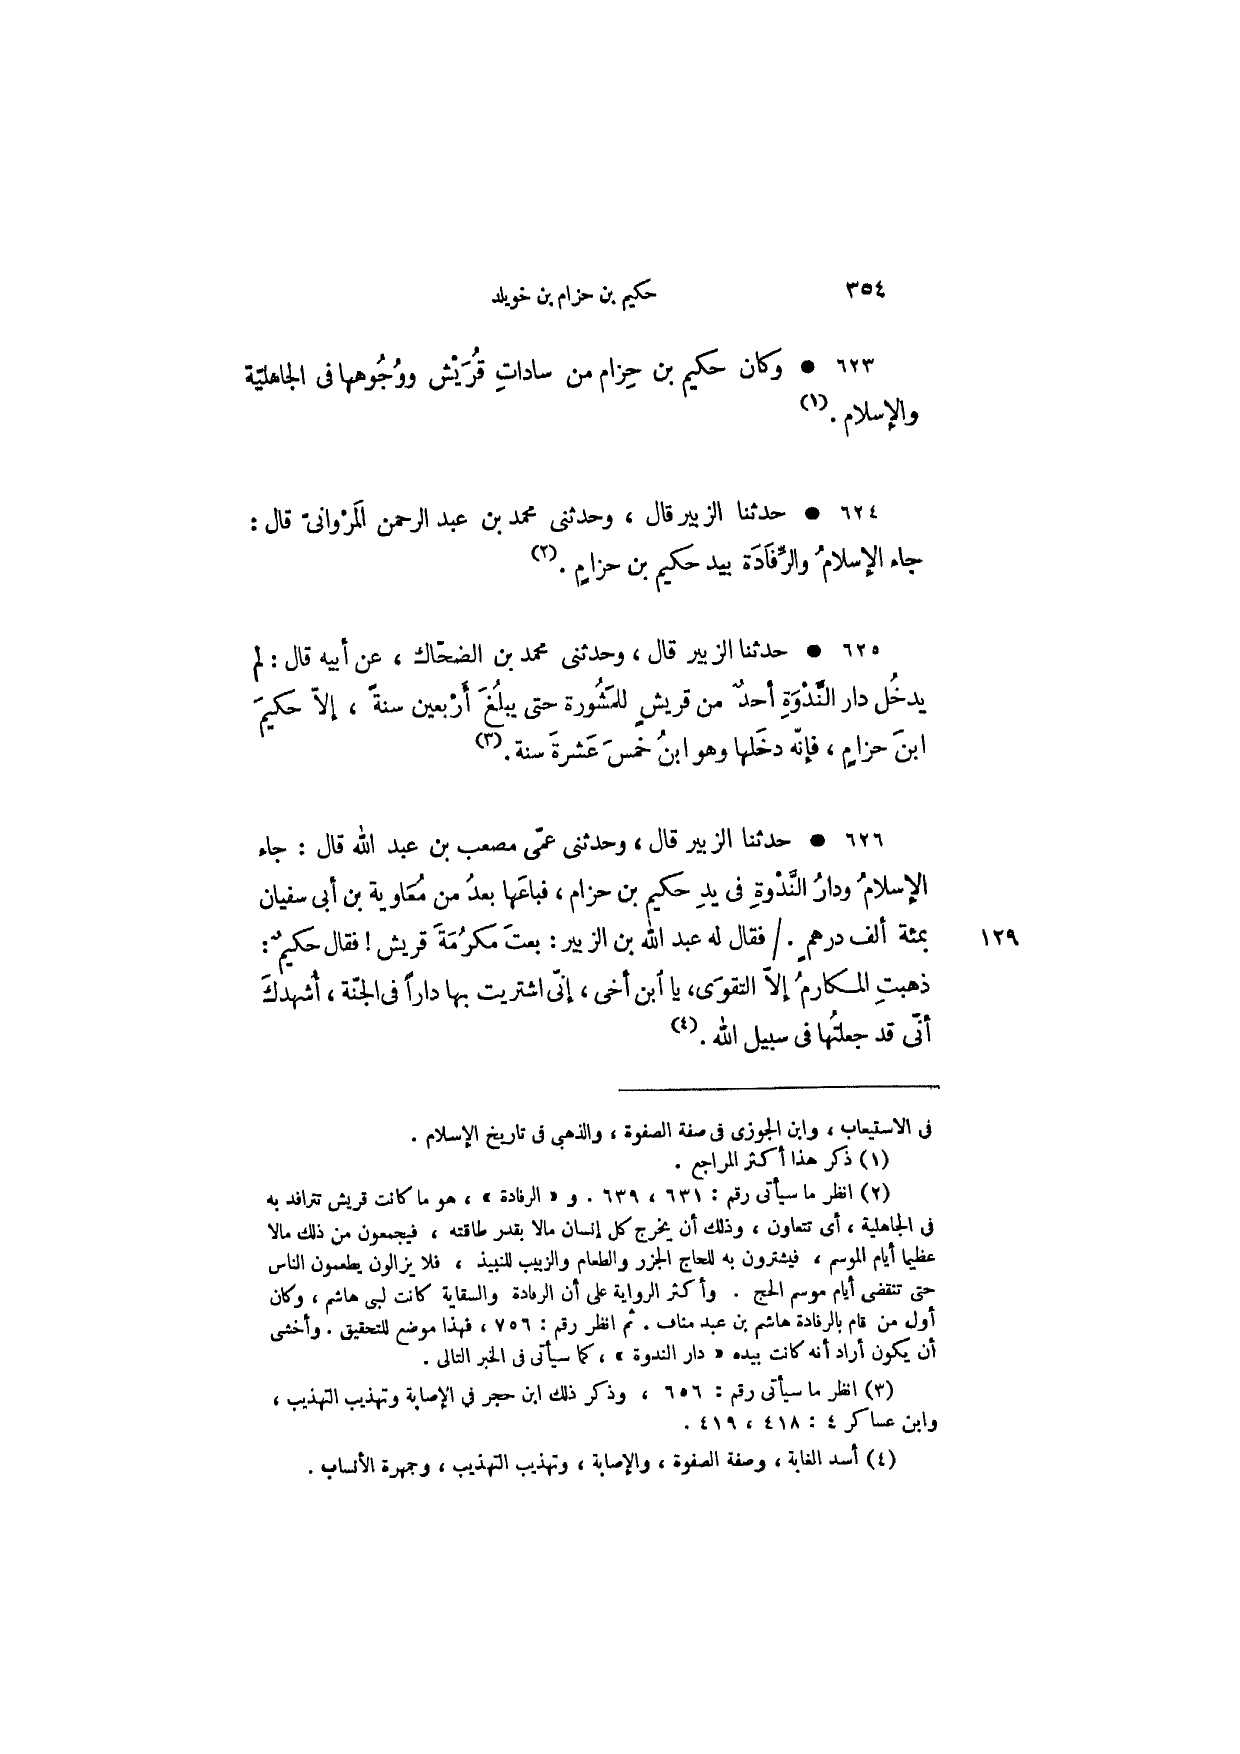 ٣٥٤ حكيم بن حزام بن خويلد
٦٢٣ ● وكان حكيم بن حِزام من ساداتِ قُرَيْش ووُجُوهها فى الجاهليّة
والإسلام .(١)
٦٢٤ ● حدثنا الزبير قال ، وحدثنى محمد بن عبد الرحمن المَرْوانىّ قال :
جاء الإسلامُ والرِّفَادَة بيد حكيم بن حزامٍ .(٢)
٦٢٥ ● حدثنا الزبير قال ، وحدثنى محمد بن الضحّاك ، عن أبيه قال : لم
يدخُل دار النَّدْوَةِ أحدٌ من قريشٍ للمَشُورة حتى يبلُغَ أَرْبعين سنةً ، إلاّ حكيمَ
ابنَ حزامٍ ، فإنّه دخَلها وهو ابنُ خمسَ عَشرةَ سنة .(٣)
٦٢٦ ● حدثنا الزبير قال ، وحدثنى عمّى مصعب بن عبد الله قال : جاء
الإسلامُ ودارُ النَّدْوةِ فى يدِ حكيم بن حزام ، فباعَها بعدُ من مُعَاوية بن أبى سفيان
بمئة ألف درهمٍ . / فقال له عبد الله بن الزبير : بعتَ مَكرُمَةَ قريش ! فقال حكيمٌ : ١٢٩
ذهبتِ المكارمُ إلاّ التقوَى، يا ابن أخى ، إنّى اشتريت بها داراً فى الجنّة ، أُشهدكَ
أنّى قد جعلتُها فى سبيل الله .(٤)
فى الاستيعاب ، وابن الجوزى فى صفة الصفوة ، والذهبى فى تاريخ الإسلام .
(١) ذكر هذا أكثر المراجع .
(٢) انظر ما سيأتى رقم : ٦٣١ ، ٦٣٩ . و « الرفادة » ، هو ما كانت قريش تترافد به
فى الجاهلية ، أى تتعاون ، وذلك أن يخرج كل إنسان مالا بقدر طاقته ، فيجمعون من ذلك مالا
عظيما أيام الموسم ، فيشترون به للحاج الجزر والطعام والزبيب للنبيذ ، فلا يزالون يطعمون الناس
حتى تنقضى أيام موسم الحج . وأكثر الرواية على أن الرفادة والسقاية كانت لبى هاشم ، وكان
أول من قام بالرفادة هاشم بن عبد مناف . ثم انظر رقم : ٧٥٦ ، فهذا موضع للتحقيق . وأخشى
أن يكون أراد أنه كانت بيده « دار الندوة » ، كما سيأتى فى الخبر التالى .
(٣) انظر ما سيأتى رقم : ٦٥٦ ، وذكر ذلك ابن حجر في الإصابة وتهذيب التهذيب ،
وابن عساكر ٤ : ٤١٨ ، ٤١٩ .
(٤) أسد الغابة ، وصفة الصفوة ، والإصابة ، وتهذيب التهذيب ، وجمهرة الأنساب .